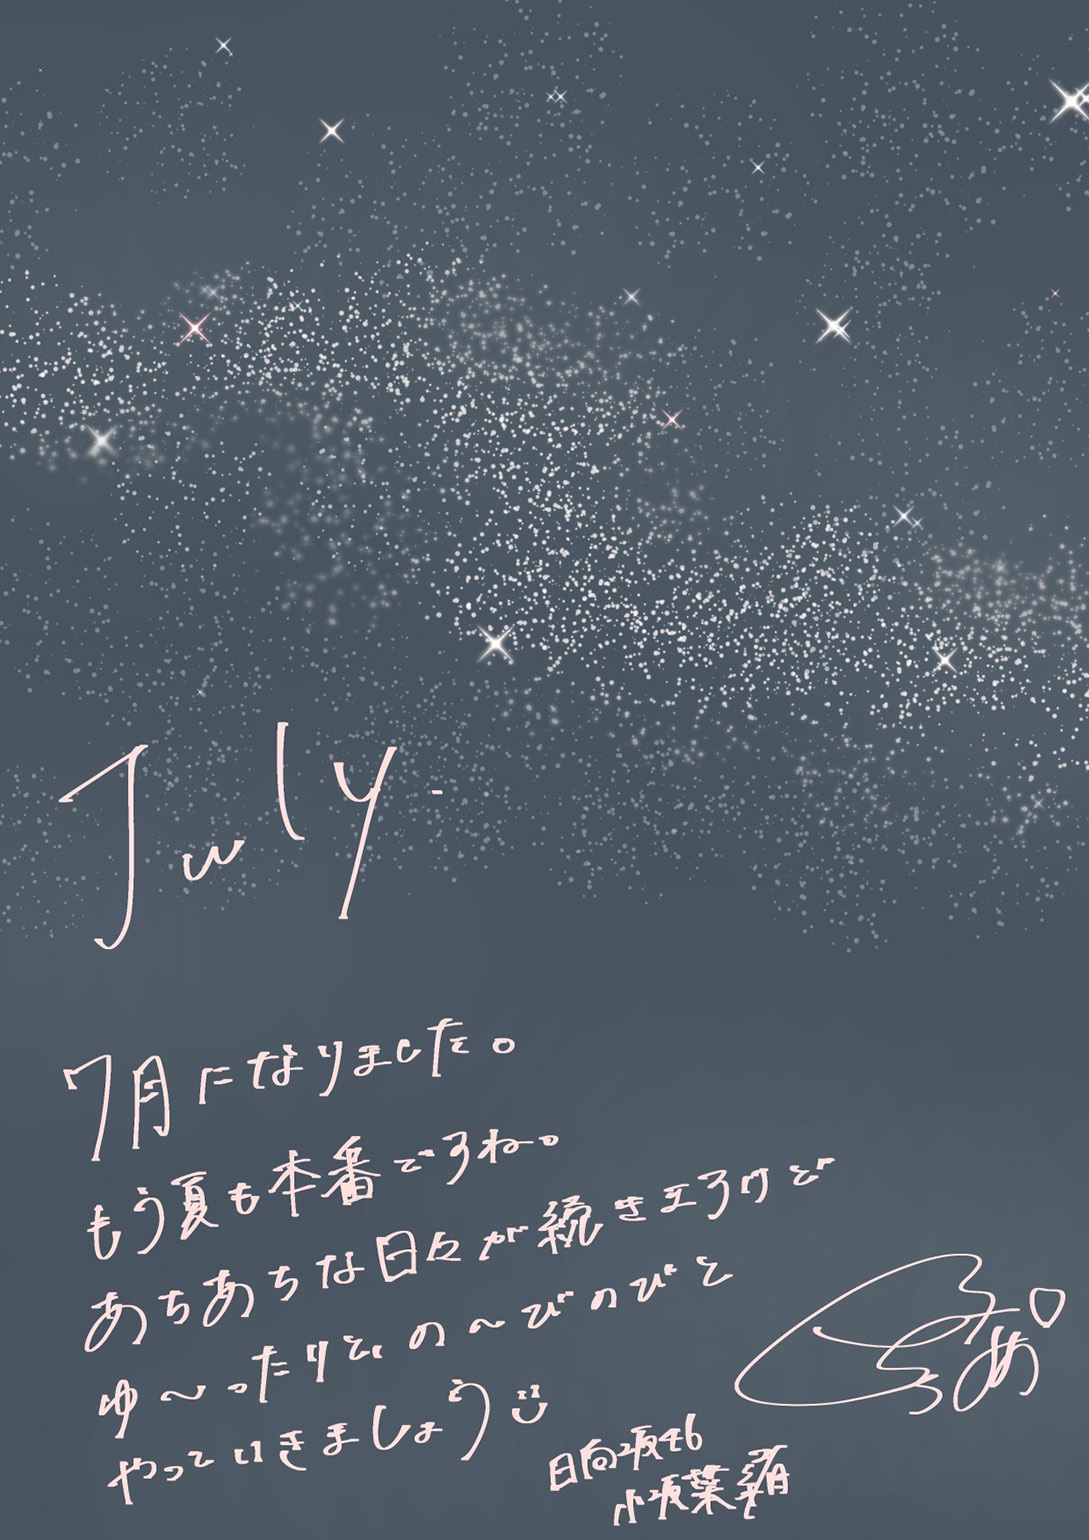 July.
7月になりました。
もう夏も本番ですね。
あちあちな日々が続きますけど
ゆ〜ったりと、の〜びのびと
やっていきましょう
日向坂46
小坂菜緒